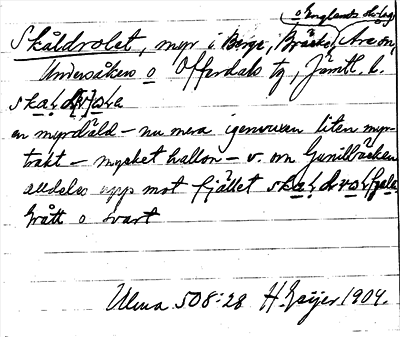 o Englands skog
Skåldrolet, myr i Berge, Bräcke, Aròn,
Undersåkers o Offerdals tg, Jämtl. l.
en myrdåld – nu mera igenvuxen liten myr-
trakt – mycket hallon – v. om Gunillbäcken
alldeles upp mot fjället
grått o svart
Ulma 508:28 H. Geijer 1904.